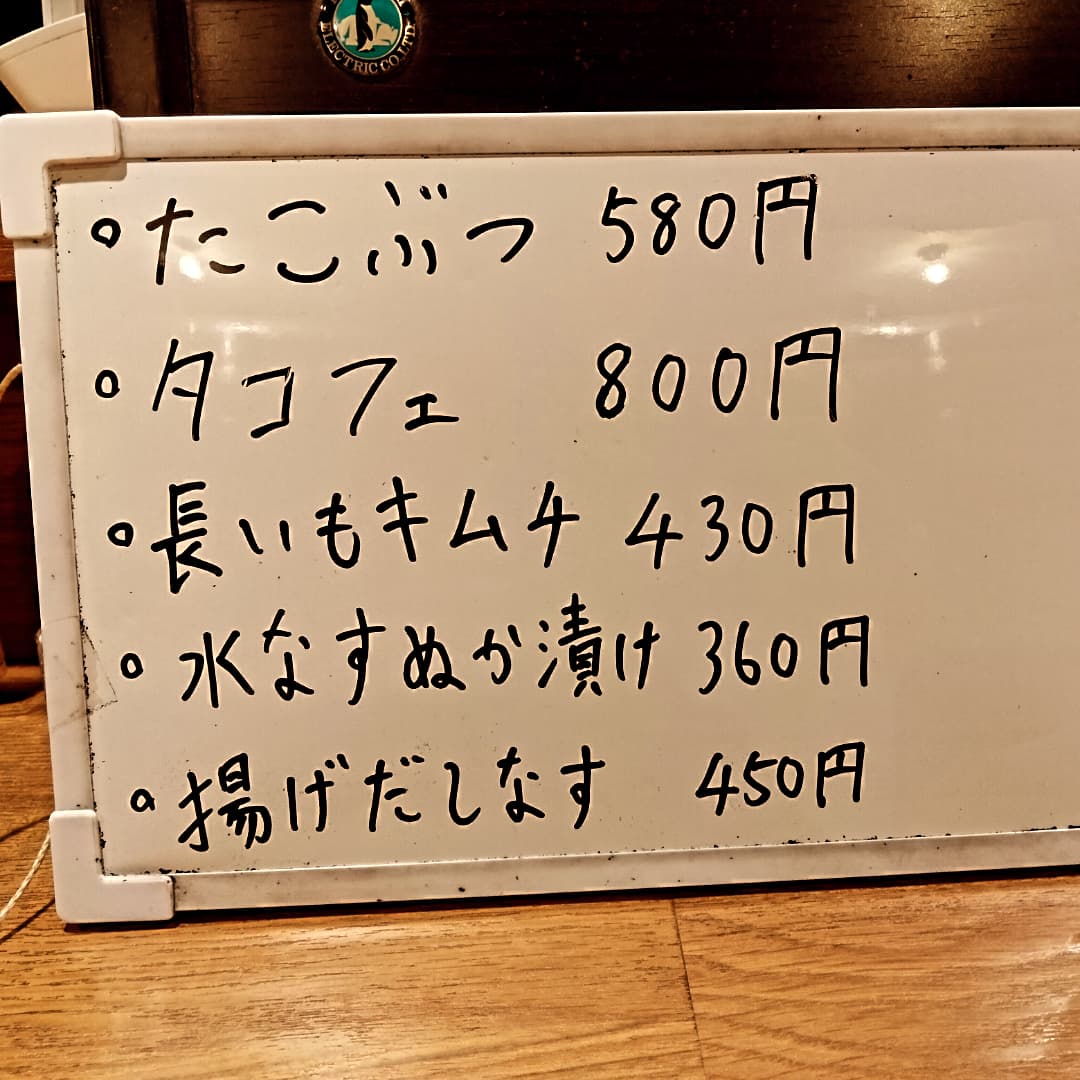 ELECTRIC CO.,LTD.
○たこぶつ 580円
○タコフェ 800円
○長いもキムチ 430円
○水なすぬか漬け 360円
○揚げだしなす 450円